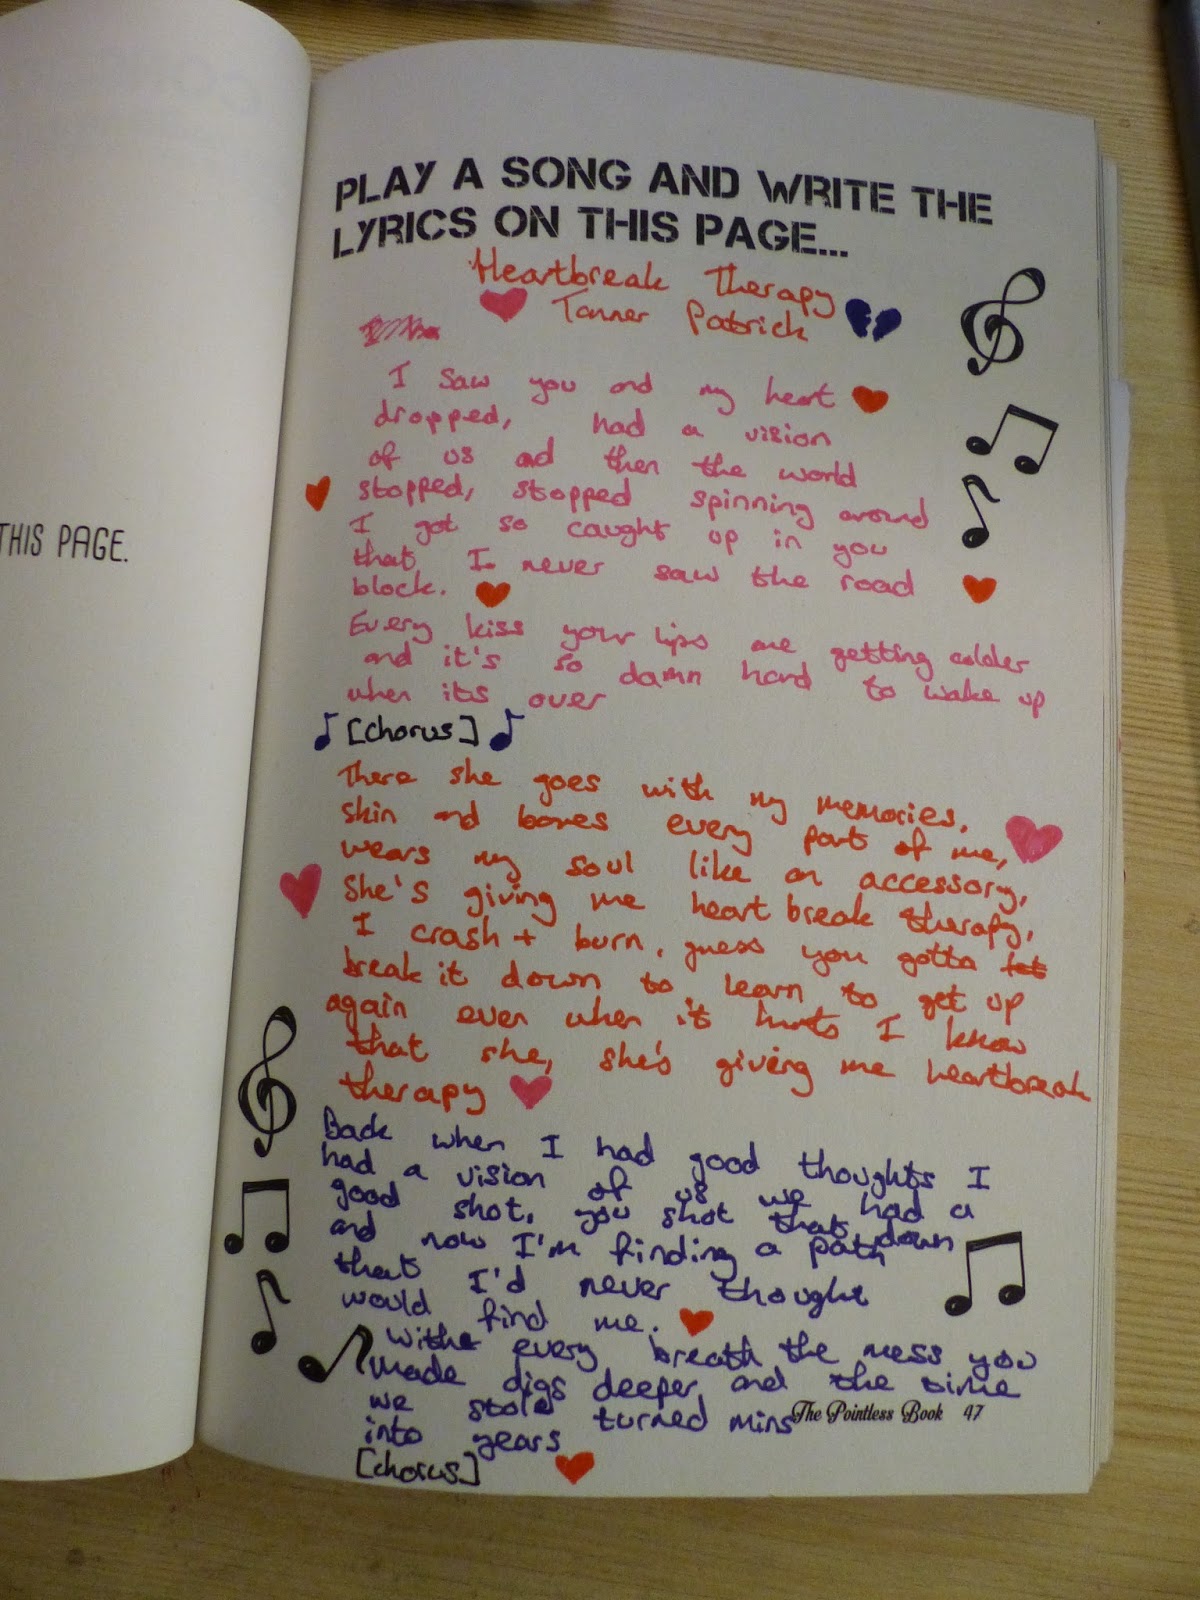 THIS PAGE.
PLAY A SONG AND WRITE THE
LYRICS ON THIS PAGE...
Heartbreak Therapy
Tanner Patrick
I saw you and my heart
dropped, had a vision
of us ad then the world
stopped, stopped spinning around
I got so caught up in you
that I never saw the road
block.
Every kiss your lips are getting colder
and it's so damn hard to wake up
when its over
[chorus]
There she goes with my memories,
skin and bones every part of me,
wears my soul like an accessory,
She's giving me heart break therapy,
I crash + burn, guess you gotta
break it down to learn to get up
again even when it hurts I know
that she, she's giving me heartbreak
therapy
Back when I had good thoughts I
had a vision of us we had a
good shot, you shot that down
and now I'm finding a path
that I'd never thought
would find me.
With every breath the mess you
made digs deeper and the time
we stole turned mins
into years
[chorus]
The Pointless Book 47